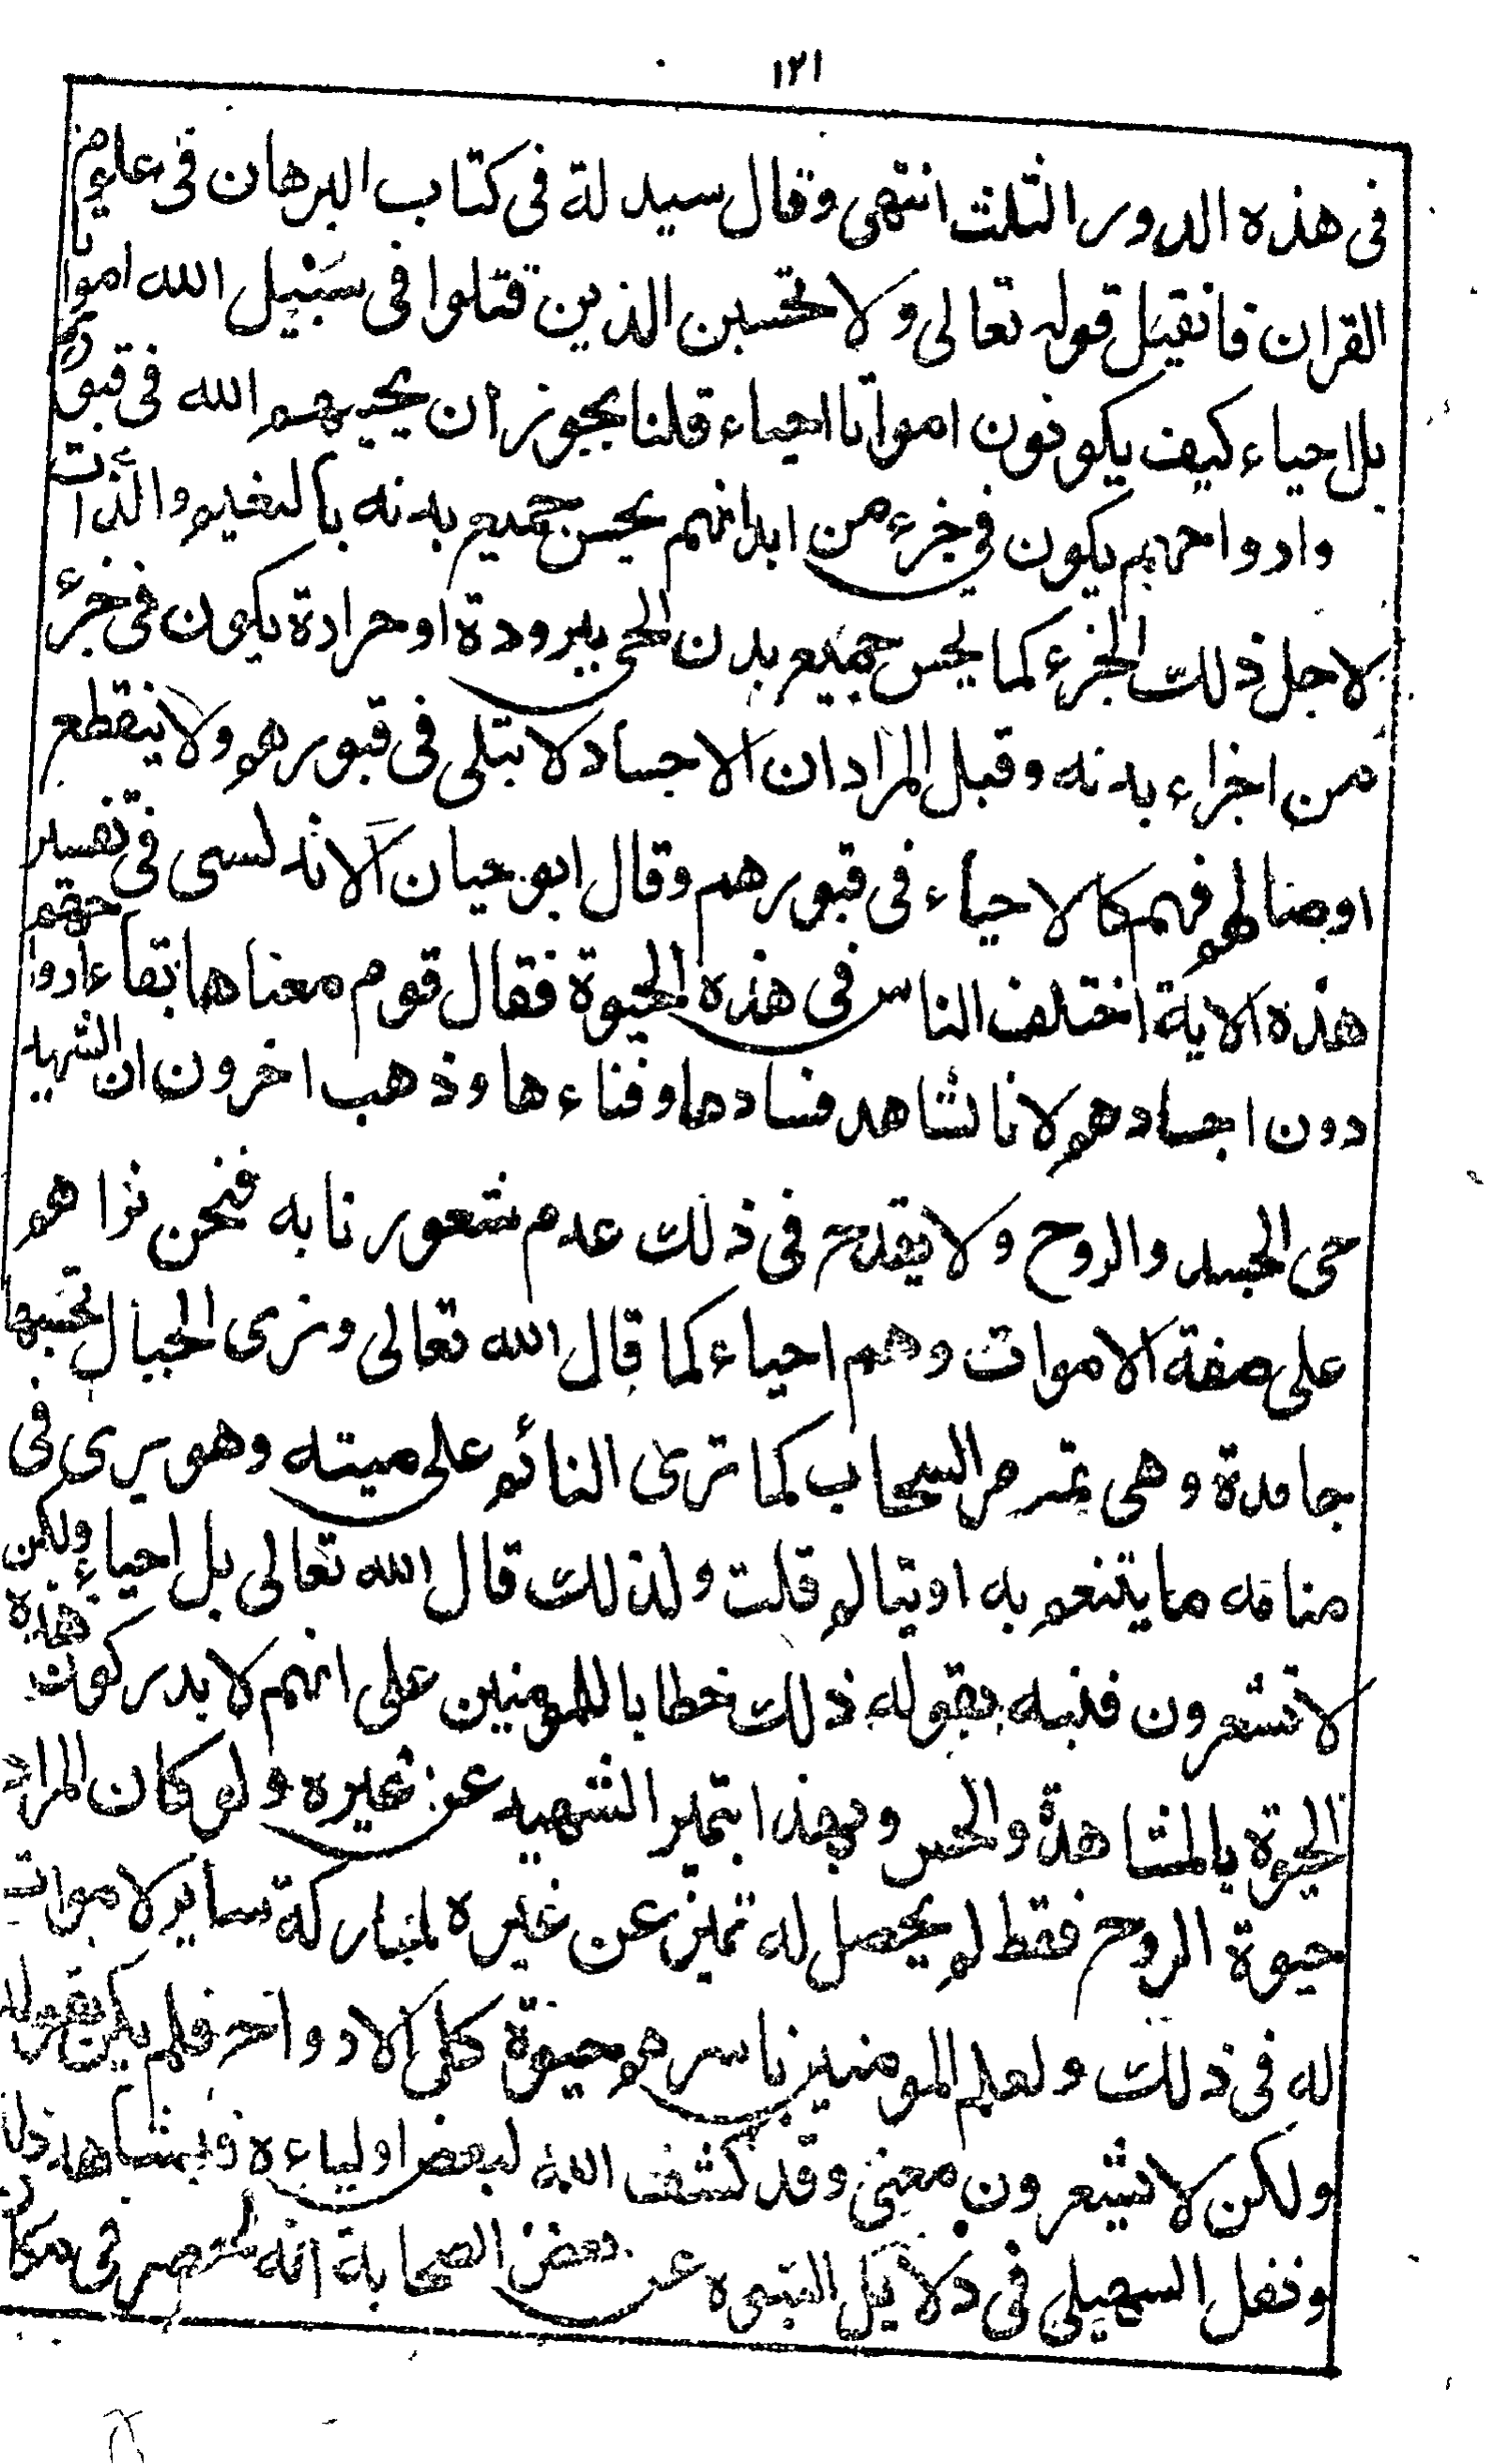 ١٢١
فى هذه الدور الثلث انتهى وقال سيدلة فى كتاب البرهان فى علوم
القران فانقيل قوله تعالى ولا تحسبن الذين قتلوا فى سبيل الله امواتا
بل احياء كيف يكونون امواتا احياء قلنا يجوز ان يحييهم الله فى قبورهم
وارواحهم يكون فى جزء من ابدانهم يحس جميع بدنه بالنعيم والذات
لاجل ذلك الجزء كما يحس جميع بدن الحى ببرودة او حرارة يكون فى جزء
من اجزاء بدنه وقيل المراد ان الاجساد لا تبلى فى قبورهم ولا ينقطع
اوصالهم فهم كالاحياء فى قبورهم وقال ابو حيان الاندلسى فى تفسير
هذه الاية اختلف الناس فى هذه الحيوة فقال قوم معناها بقاء ارواحهم
دون اجسادهم لانا نشاهد فسادها وفناءها وذهب اخرون ان الشهيد
حى الجسد والروح ولا يقدح فى ذلك عدم شعورنا به فنحن نراهم
على صفة الاموات وهم احياء كما قال الله تعالى وترى الجبال تحسبها
جامدة وهى تمر مر السحاب كما ترى النائم على ميته وهو يرى فى
منامه ما يتنعم به او يتالم قلت ولذلك قال الله تعالى بل احياء ولكن
لا تشعرون فنبه بقوله ذلك خطابا للمومنين على انهم لا يدركون هذه
الحيوة بالمشاهدة والحس وبهذا يتميز الشهيد عن غيره ولو كان المراد
حيوة الروح فقط لم يحصل له تميز عن غيره لمشاركة ساير لاموات
له فى ذلك ولعلم المومنين باسرهم حيوة كل الارواح فلم يكن لقوله
ولكن لا تشعرون معنى وقد كشف الله لبعض اولياءه فيشاهد ذلك
ونقل السهيلى فى دلايل النبوه عن بعض الصحابة انه فى مكان